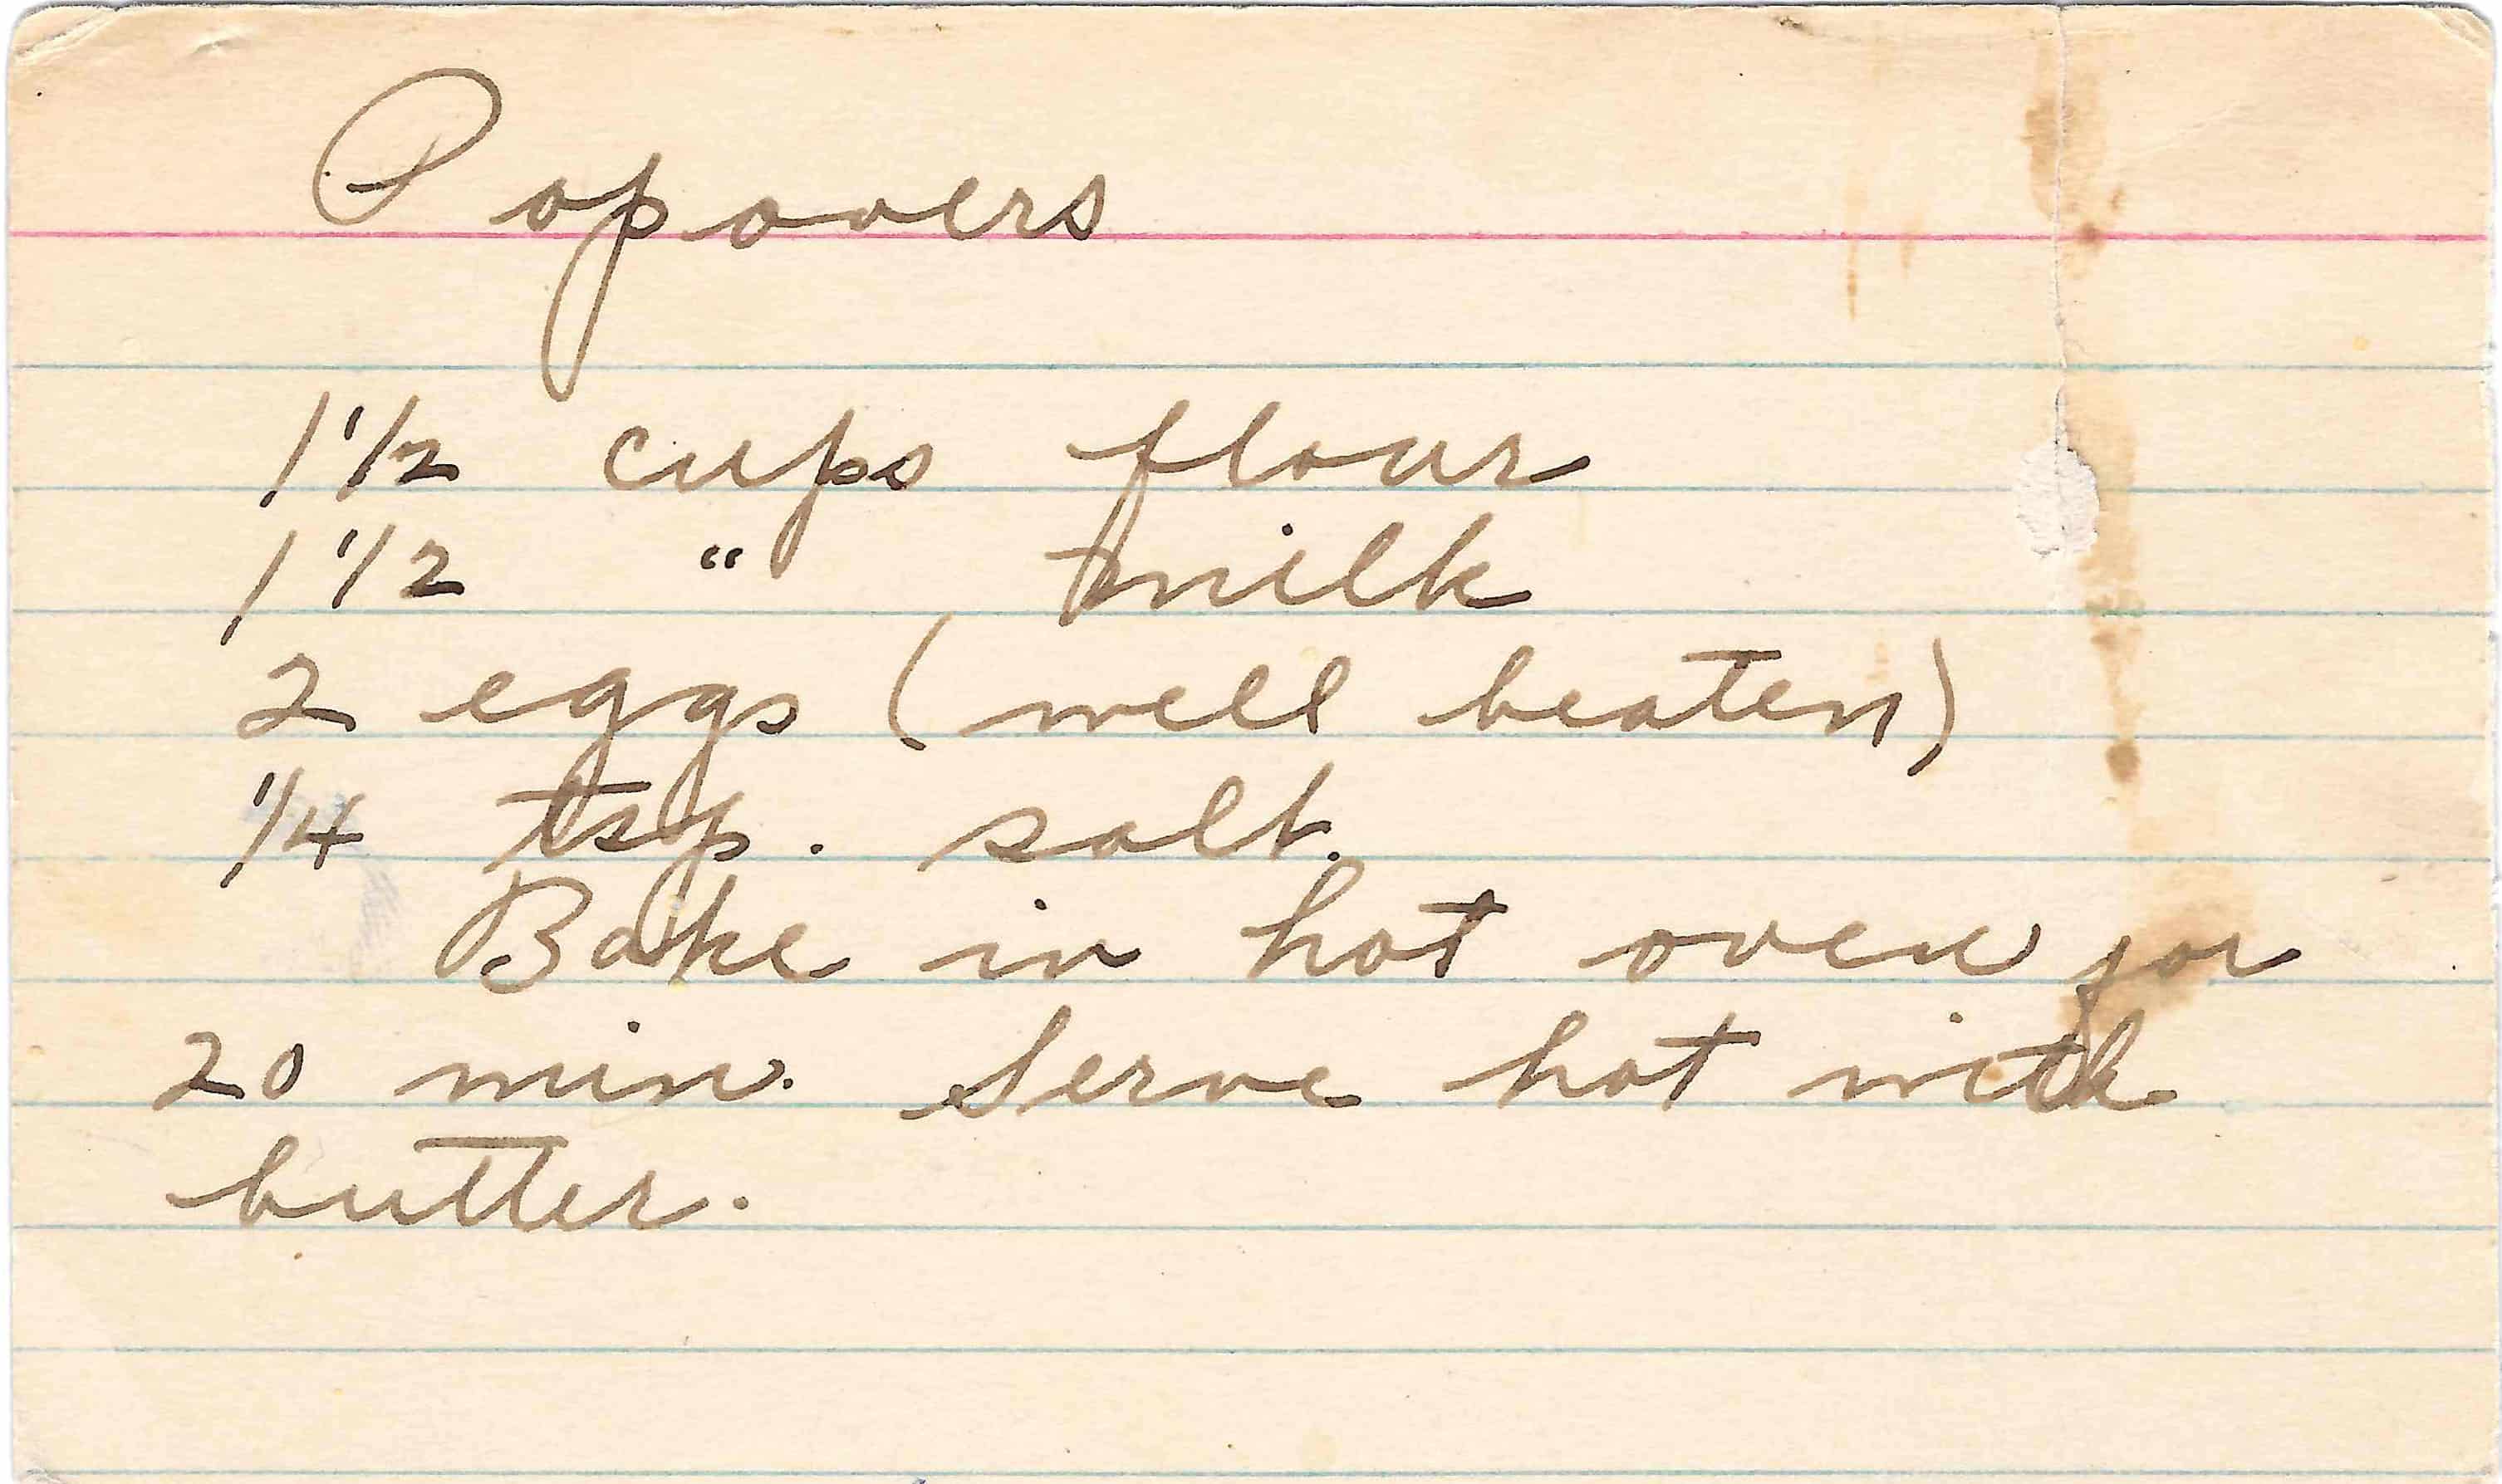 Popovers
1 1/2 cups flour
1 1/2 " milk
2 eggs (well beaten)
1/4 tsp. salt.
Bake in hot oven for
20 min. Serve hot with
butter.